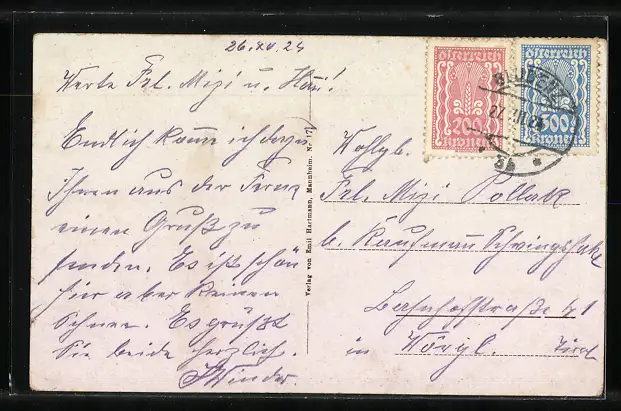 26.XII.24
Werte Frl. Mizi u. Hansi!
Endlich komme ich dazu
Ihnen aus der Ferne
einen Gruß zu
senden. Es ist schön
hier aber keinen
Schnee. Es grüßt
Sie beide herzlich.
Winder.
Verlag von Emil Hartmann, Mannheim. Nr. 17
Österreich
200
Kronen
Österreich
500
Kronen
BLUDENZ
Wohlgb.
Frl. Mizi Pollak
b. Kaufmann
Bahnhofstraße 41
in Wörgl. Tirol